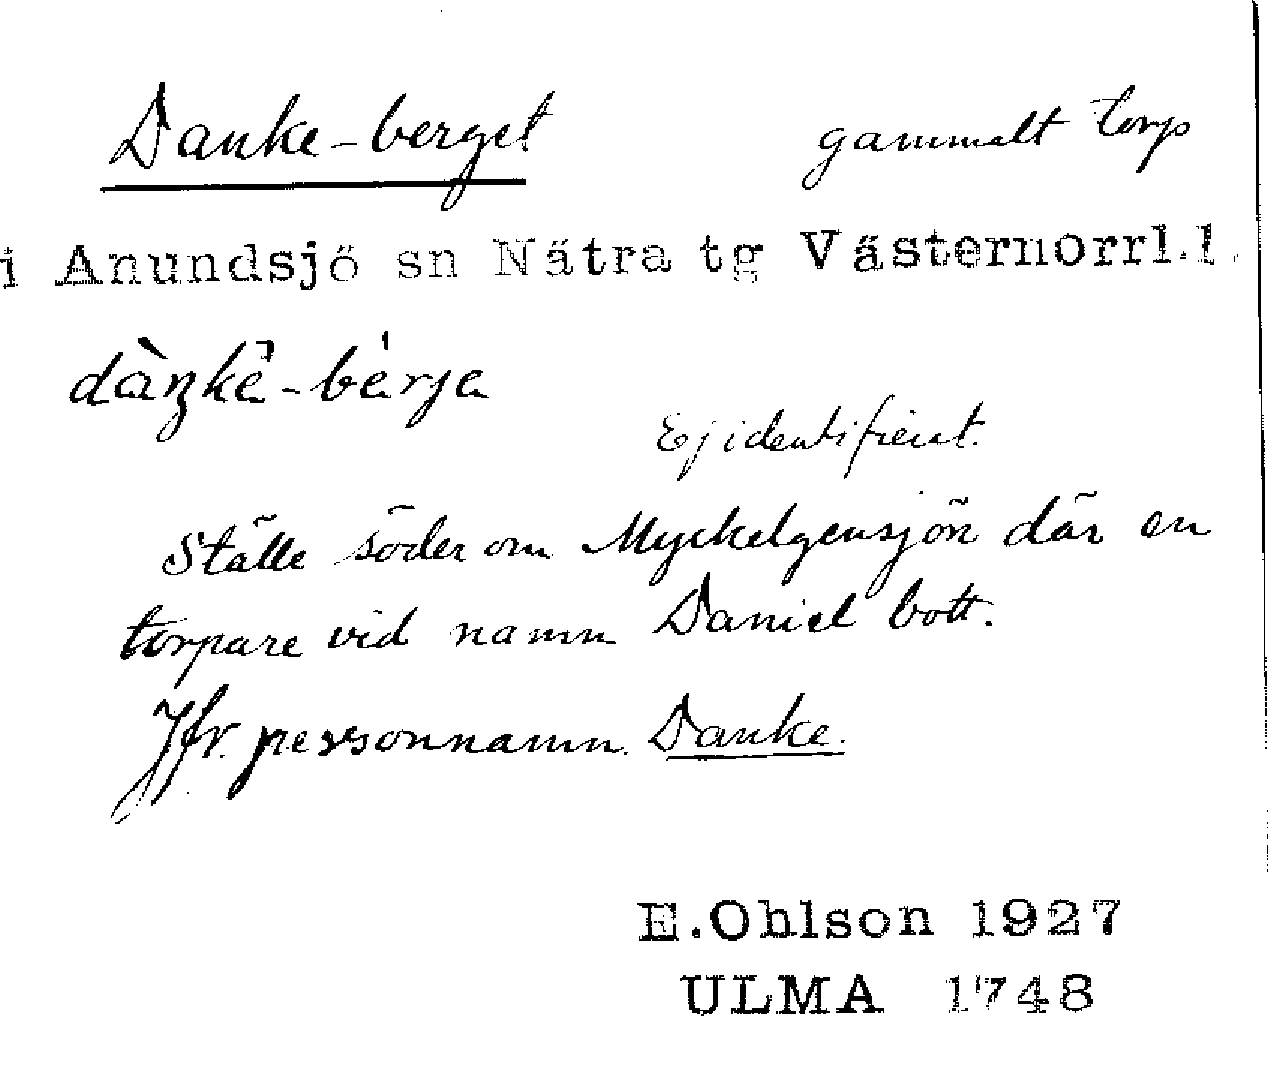 Danke-berget gammalt torp
i Anundsjö sn Nätra tg Västernorrl.l.
Ej identifierat.
Ställe söder om Myckelgensjön där en
torpare vid namn Daniel bott.
Jfr. personnamn. Danke.
E.Ohlson 1927
ULMA 1748